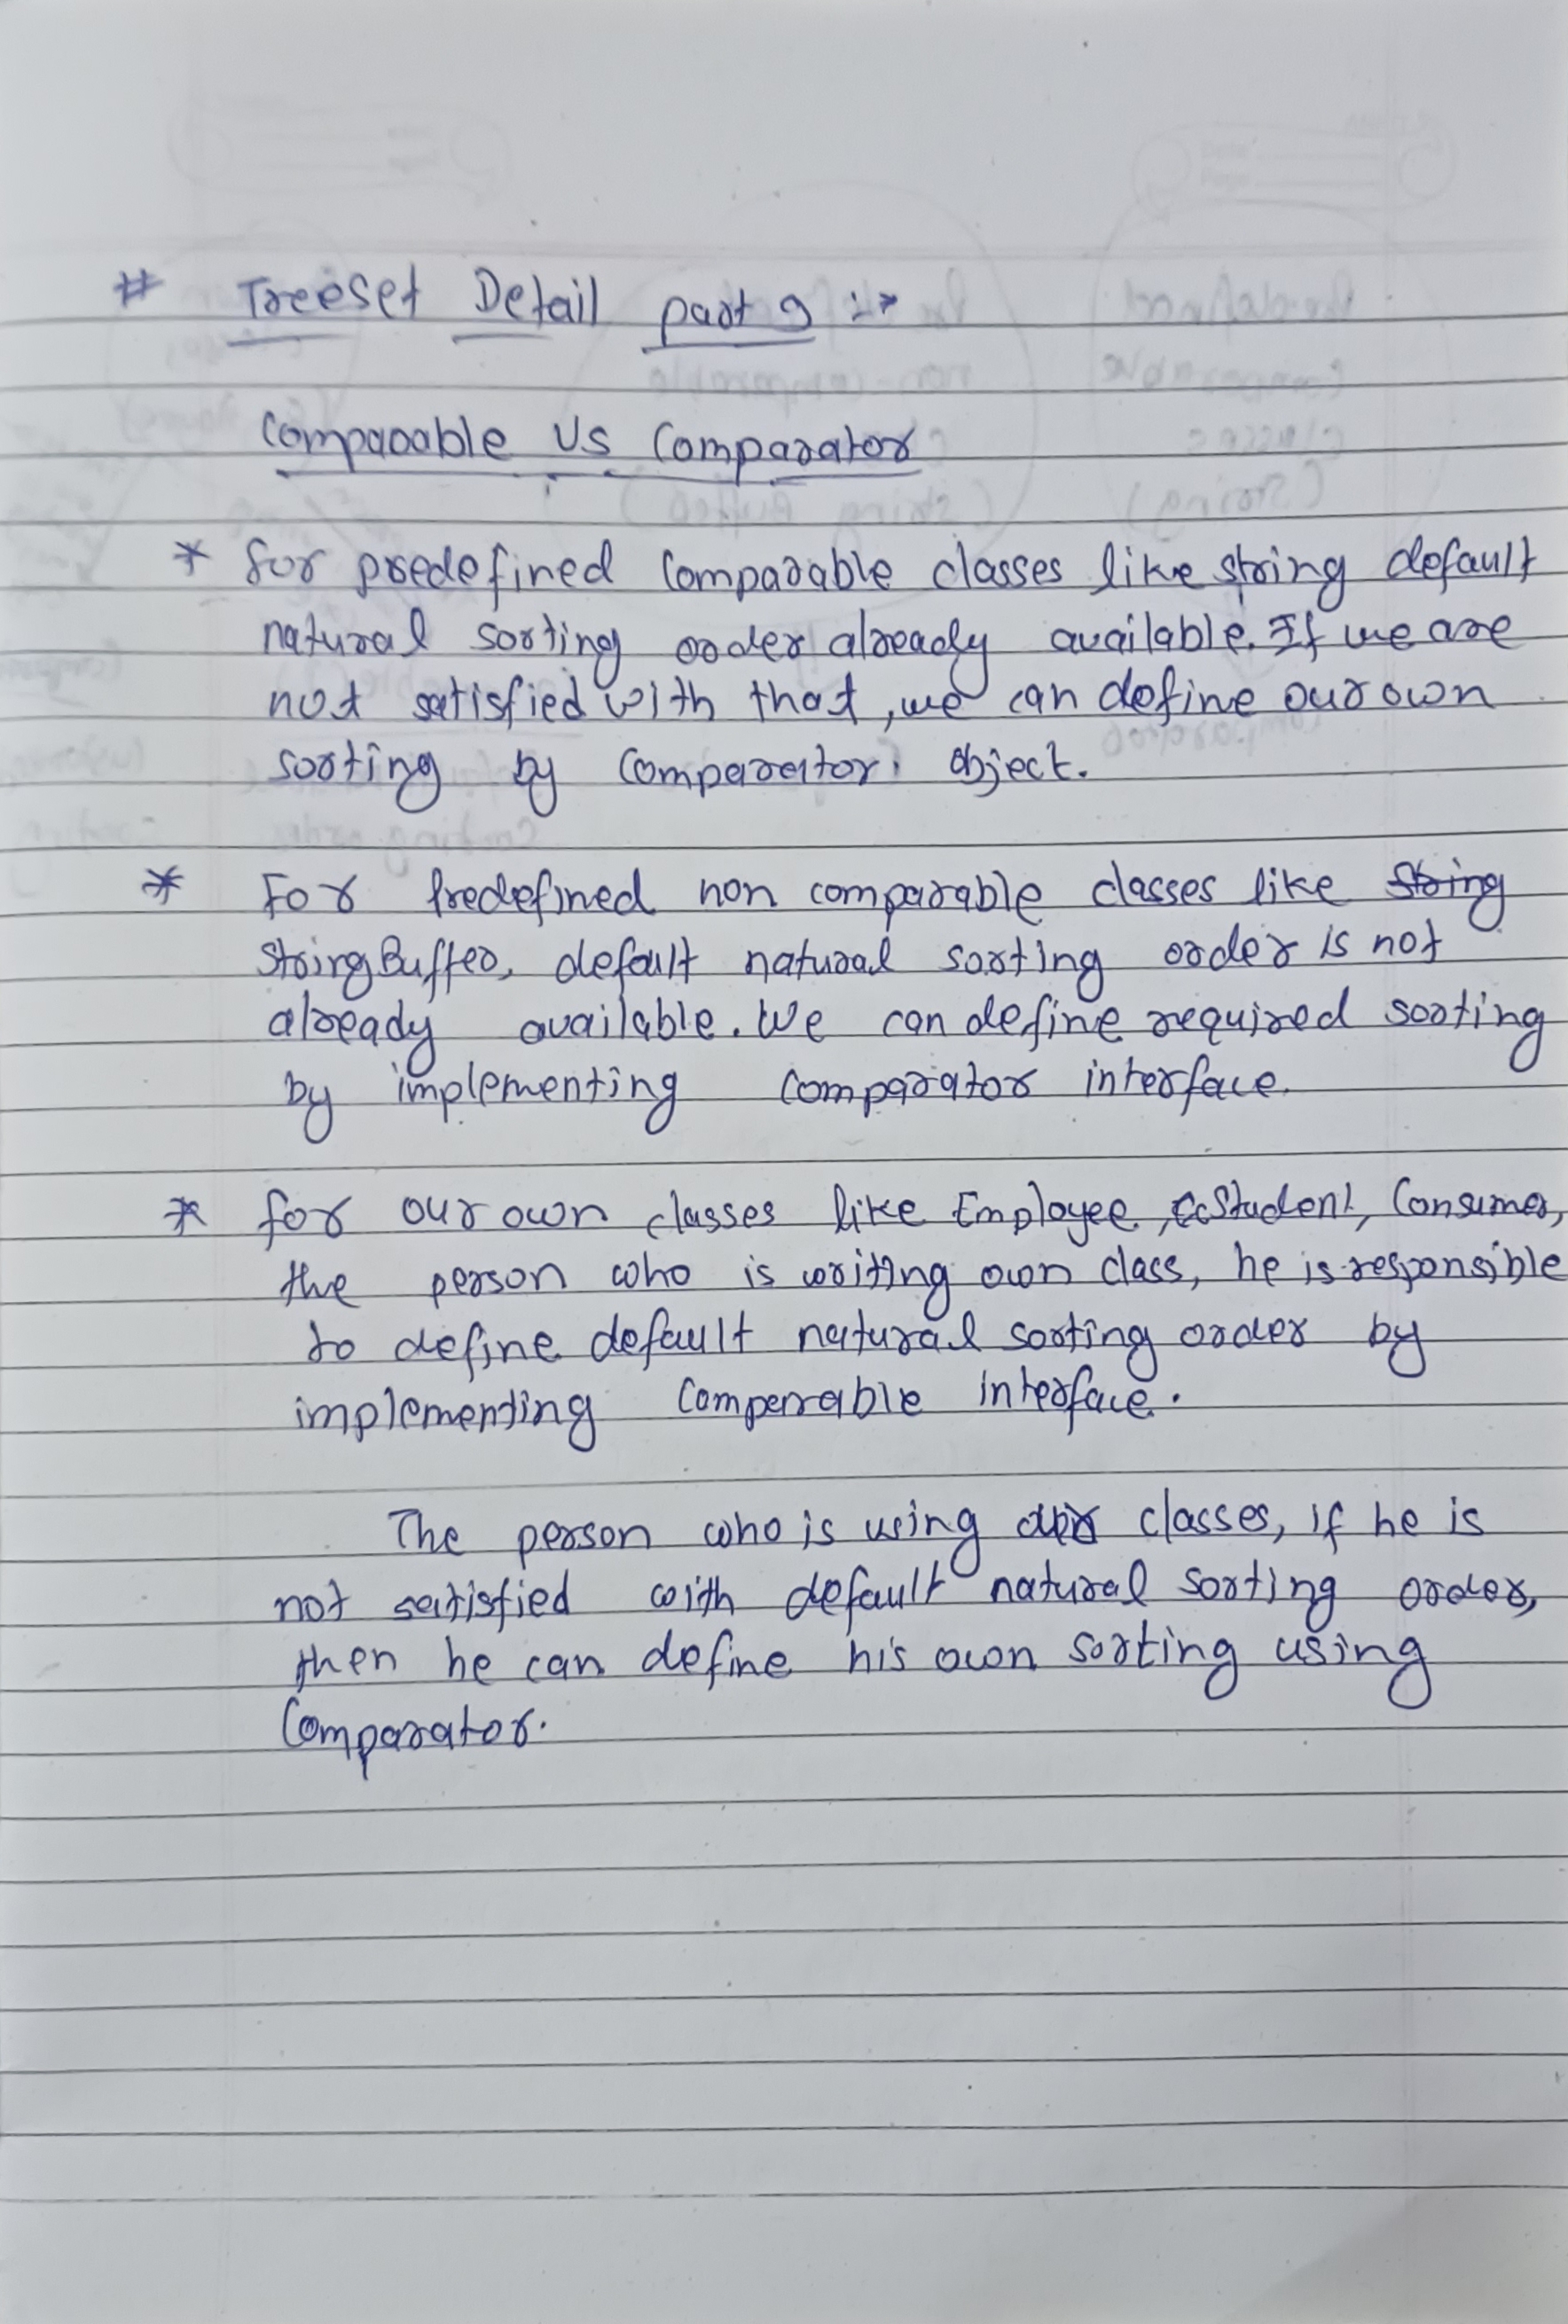 # Treeset Detail part 9 :->
Comparable Vs Comparator
* for predefined Comparable classes like string default
natural sorting order already available. If we are
not satisfied with that, we can define our own
sorting by Comparator object.
* For Predefined non comparable classes like
StringBuffer, default natural sorting order is not
already available. We can define required sorting
by implementing Comparator interface.
* for our own classes like Employee, Student, Consumer,
the person who is writing own class, he is responsible
to define default natural sorting order by
implementing Comparable interface.
The person who is using our classes, if he is
not satisfied with default natural sorting order,
then he can define his own sorting using
Comparator.